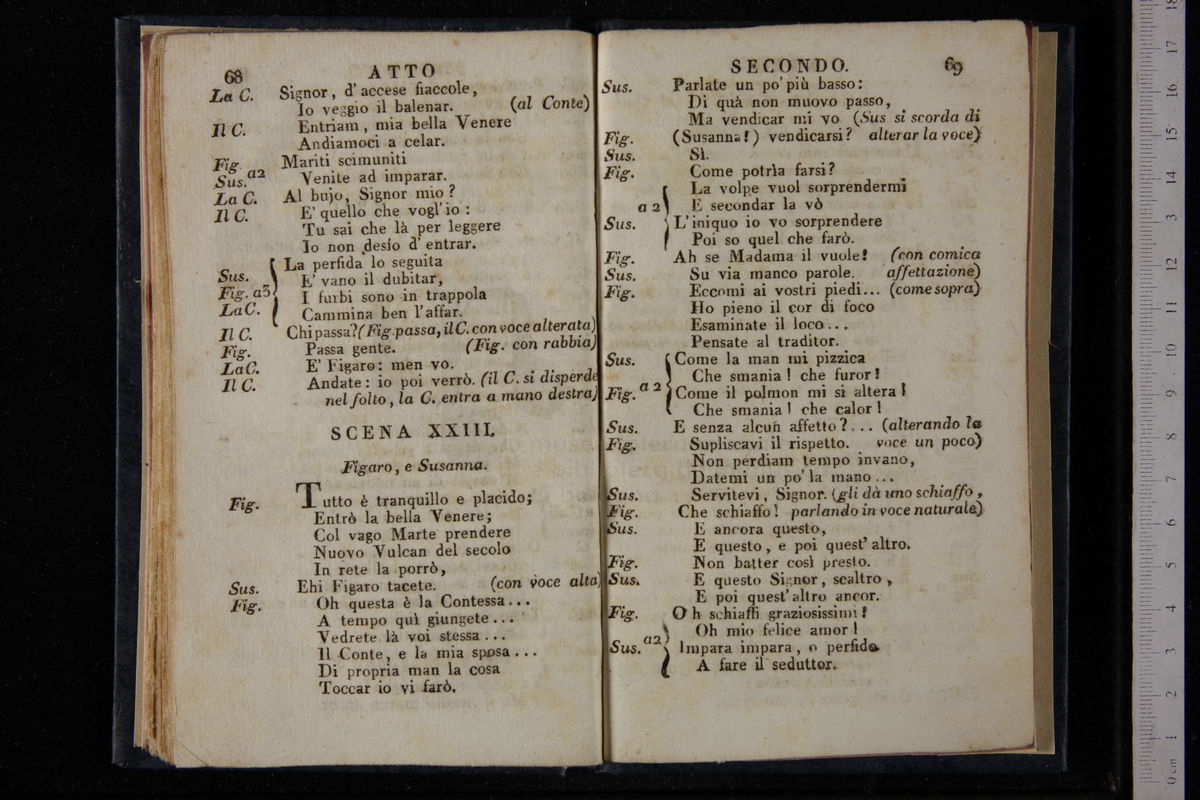 68 ATTO
La C. Signor, d'accese fiaccole,
Io veggio il balenar. (al Conte)
Il C. Entriam, mia bella Venere
Andiamoci a celar.
Fig. Mariti scimuniti
Sus. a2 Venite ad imparar.
La C. Al bujo, Signor mio?
Il C. E' quello che vogl'io:
Tu sai che là per leggere
Io non desio d'entrar.
La perfida lo seguita
Sus. E' vano il dubitar,
Fig. a3 I furbi sono in trappola
La C. Cammina ben l'affar.
Il C. Chi passa? (Fig. passa, il C. con voce alterata)
Fig. Passa gente. (Fig. con rabbia)
La C. E' Figaro: men vo.
Il C. Andate: io poi verrò. (il C. si disperde
nel folto, la C. entra a mano destra)
SCENA XXIII.
Figaro, e Susanna.
Fig. Tutto è tranquillo e placido;
Entrò la bella Venere;
Col vago Marte prendere
Nuovo Vulcan del secolo
In rete la porrò,
Sus. Ehi Figaro tacete. (con voce alta)
Fig. Oh questa è la Contessa...
A tempo quì giungete...
Vedrete là voi stessa...
Il Conte, e la mia sposa...
Di propria man la cosa
Toccar io vi farò.
SECONDO. 69
Sus. Parlate un po' più basso:
Di quà non muovo passo,
Ma vendicar mi vo (Sus si scorda di
Fig. (Susanna!) vendicarsi? alterar la voce)
Sus. Sì.
Fig. Come potrìa farsi?
La volpe vuol sorprendermi
a 2 E secondar la vò
Sus. L'iniquo io vo sorprendere
Poi so quel che farò.
Fig. Ah se Madama il vuole! (con comica
Sus. Su via manco parole. affettazione)
Fig. Eccomi ai vostri piedi... (come sopra)
Ho pieno il cor di foco
Esaminate il loco...
Pensate al traditor.
Sus. Come la man mi pizzica
Che smania! che furor!
Fig. a 2 Come il polmon mi si altera!
Che smania! che calor!
Sus. E senza alcun affetto?... (alterando la
Fig. Supliscavi il rispetto. voce un poco)
Non perdiam tempo invano,
Datemi un po' la mano...
Sus. Servitevi, Signor. (gli dà uno schiaffo,
Fig. Che schiaffo! parlando in voce naturale)
Sus. E ancora questo,
E questo, e poi quest' altro.
Fig. Non batter così presto.
Sus. E questo Signor, scaltro,
E poi quest'altro ancor.
Fig. Oh schiaffi graziosissimi!
Oh mio felice amor!
Sus. a2 Impara impara, o perfido
A fare il seduttor.